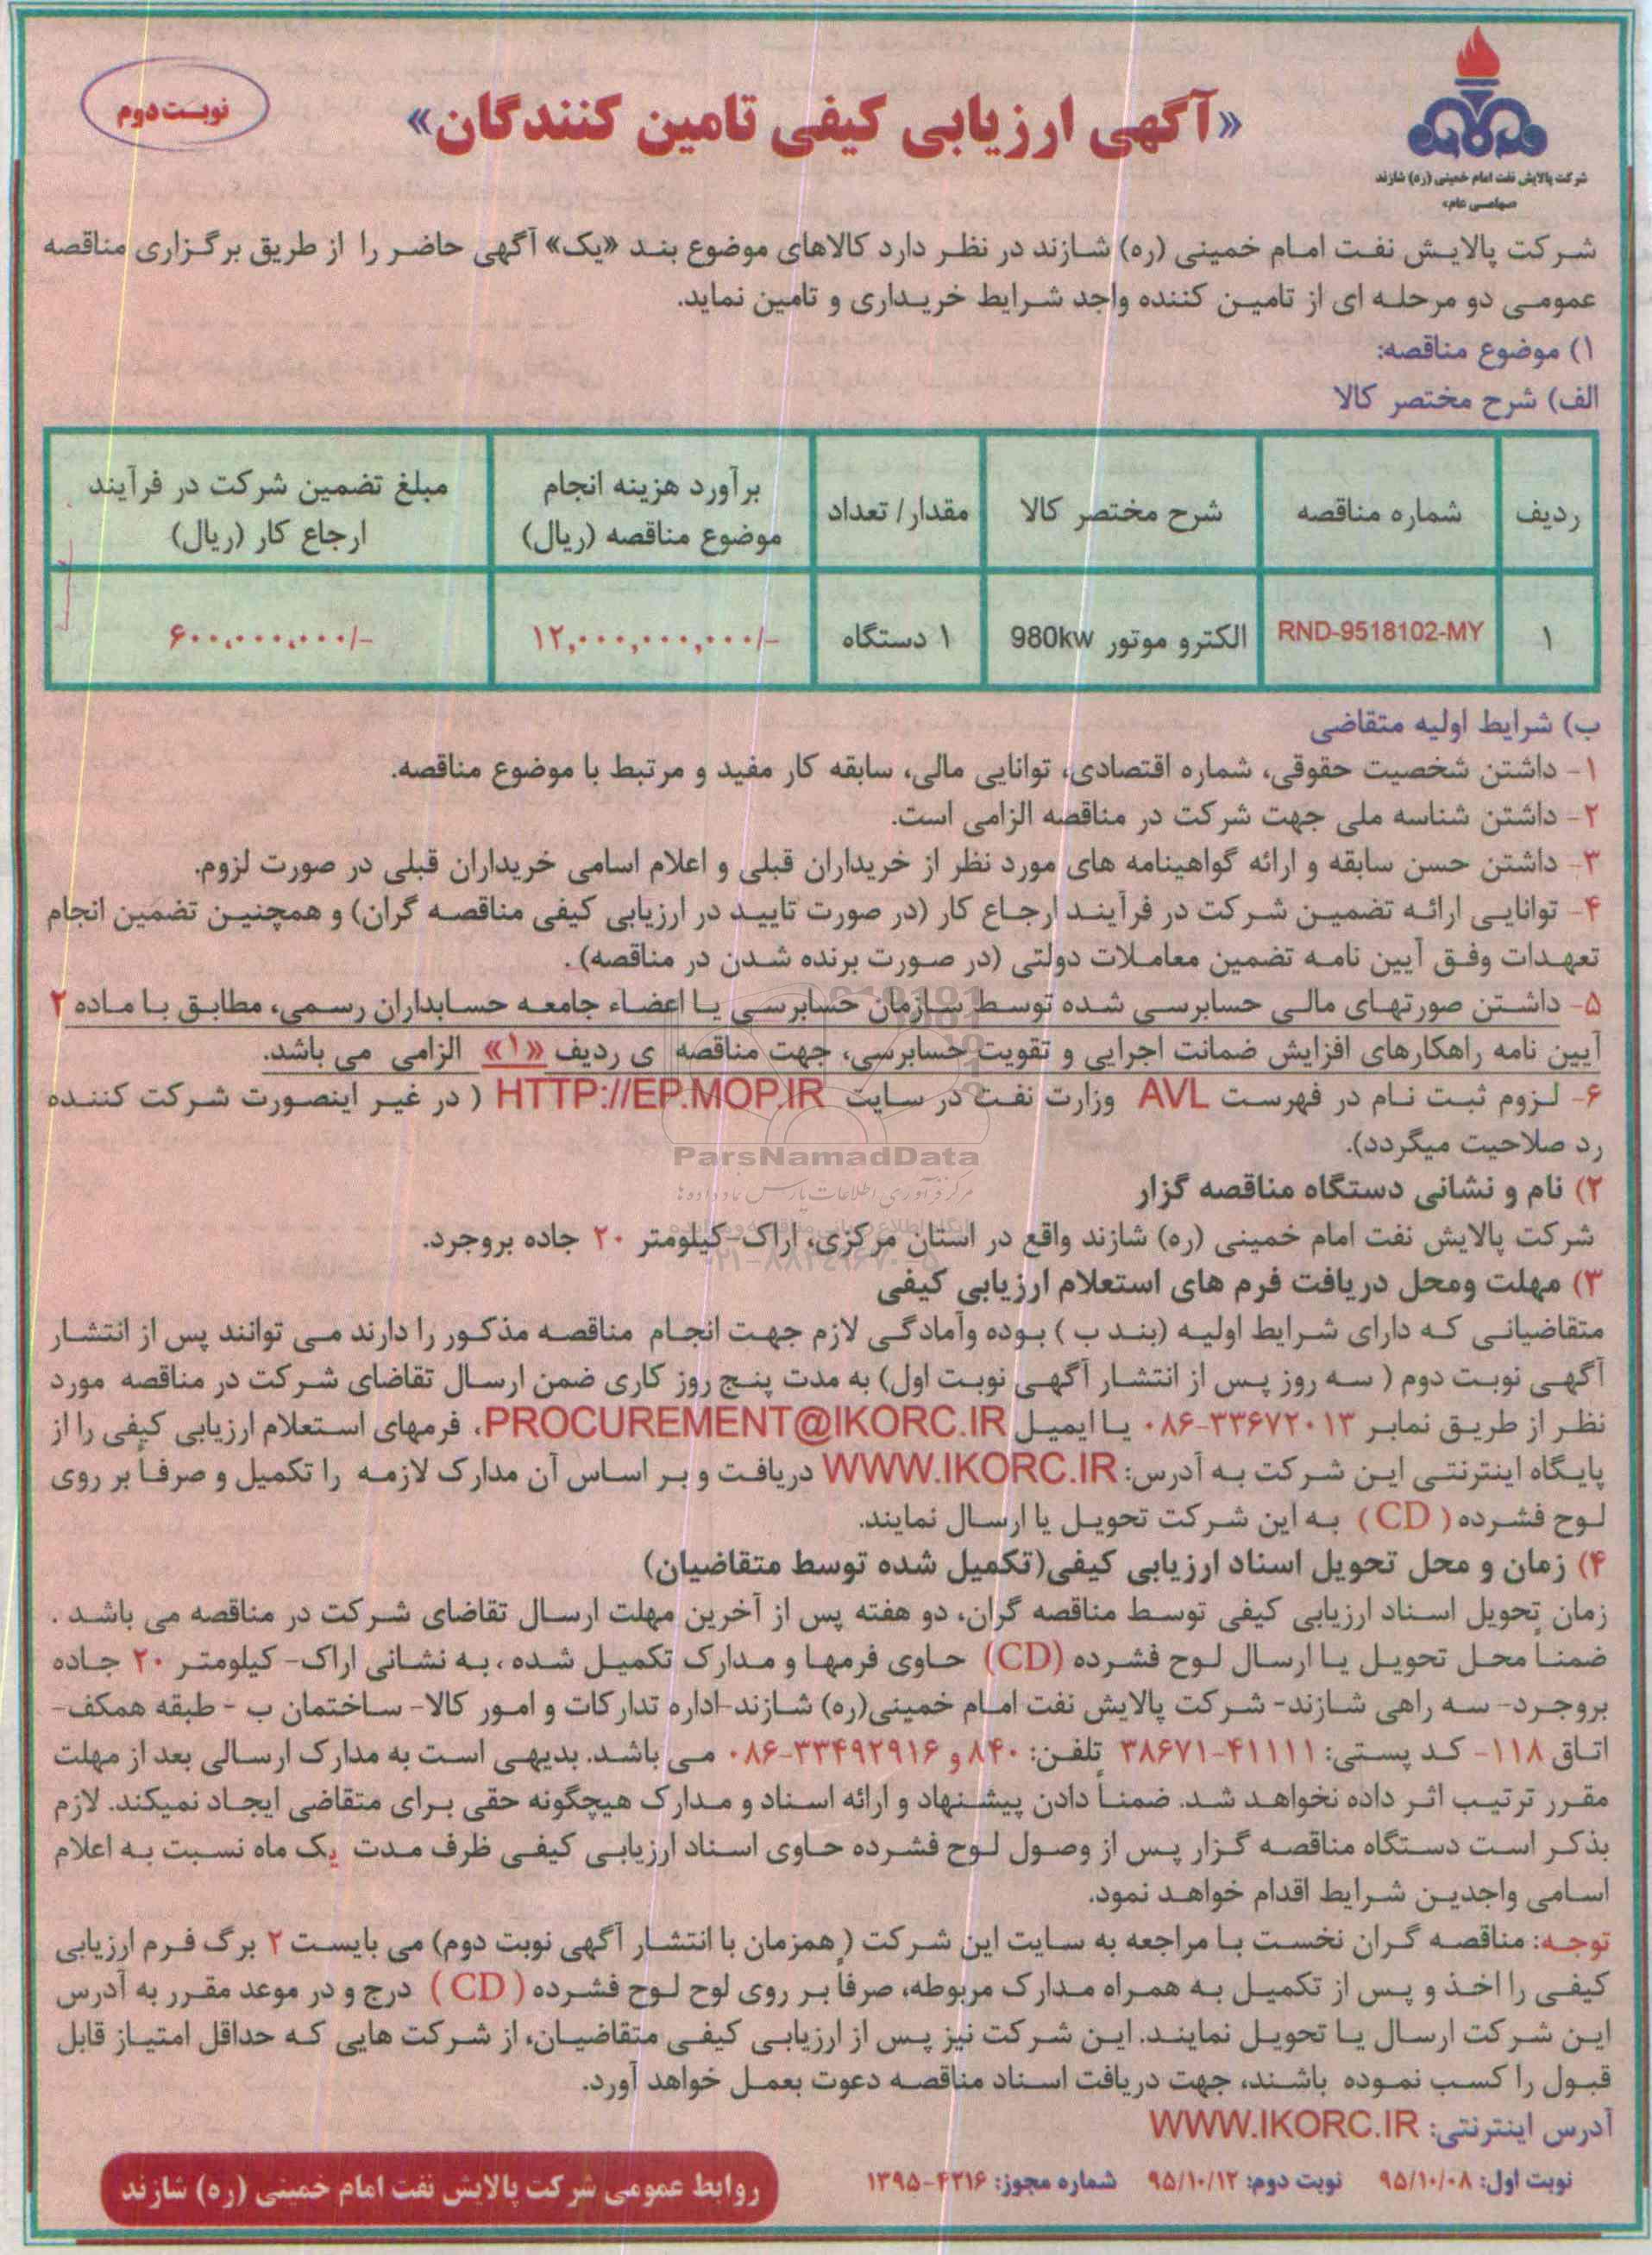 شرکت پالایش نفت امام خمینی (ره) شازند
«سهامی عام»
«آگهی ارزیابی کیفی تامین کنندگان»
نوبت دوم
شرکت پالایش نفت امام خمینی (ره) شازند در نظر دارد کالاهای موضوع بند «یک» آگهی حاضر را از طریق برگزاری مناقصه
عمومی دو مرحله ای از تامین کننده واجد شرایط خریداری و تامین نماید.
۱) موضوع مناقصه:
الف) شرح مختصر کالا
ردیف | شماره مناقصه | شرح مختصر کالا | مقدار/ تعداد | برآورد هزینه انجام موضوع مناقصه (ریال) | مبلغ تضمین شرکت در فرآیند ارجاع کار (ریال)
۱ | RND-9518102-MY | الکترو موتور 980kw | ۱ دستگاه | ۱۲,۰۰۰,۰۰۰,۰۰۰/- | ۶۰۰,۰۰۰,۰۰۰/-
ب) شرایط اولیه متقاضی
۱- داشتن شخصیت حقوقی، شماره اقتصادی، توانایی مالی، سابقه کار مفید و مرتبط با موضوع مناقصه.
۲- داشتن شناسه ملی جهت شرکت در مناقصه الزامی است.
۳- داشتن حسن سابقه و ارائه گواهینامه های مورد نظر از خریداران قبلی و اعلام اسامی خریداران قبلی در صورت لزوم.
۴- توانایی ارائه تضمین شرکت در فرآیند ارجاع کار (در صورت تایید در ارزیابی کیفی مناقصه گران) و همچنین تضمین انجام
تعهدات وفق آیین نامه تضمین معاملات دولتی (در صورت برنده شدن در مناقصه) .
۵- داشتن صورتهای مالی حسابرسی شده توسط سازمان حسابرسی یا اعضاء جامعه حسابداران رسمی، مطابق با ماده ۲
آیین نامه راهکارهای افزایش ضمانت اجرایی و تقویت حسابرسی، جهت مناقصه ی ردیف «۱» الزامی می باشد.
۶- لزوم ثبت نام در فهرست AVL وزارت نفت در سایت HTTP://EP.MOP.IR ( در غیر اینصورت شرکت کننده
رد صلاحیت میگردد).
ParsNamadData
مرکز فرآوری اطلاعات پارس نماد داده ها
۲) نام و نشانی دستگاه مناقصه گزار
شرکت پالایش نفت امام خمینی (ره) شازند واقع در استان مرکزی، اراک-کیلومتر ۲۰ جاده بروجرد.
۳) مهلت ومحل دریافت فرم های استعلام ارزیابی کیفی
متقاضیانی که دارای شرایط اولیه (بند ب ) بوده وآمادگی لازم جهت انجام مناقصه مذکور را دارند می توانند پس از انتشار
آگهی نوبت دوم ( سه روز پس از انتشار آگهی نوبت اول) به مدت پنج روز کاری ضمن ارسال تقاضای شرکت در مناقصه مورد
نظر از طریق نمابر ۳۳۶۷۲۰۱۳-۰۸۶ یا ایمیل PROCUREMENT@IKORC.IR، فرمهای استعلام ارزیابی کیفی را از
پایگاه اینترنتی این شرکت به آدرس: WWW.IKORC.IR دریافت و بر اساس آن مدارک لازمه را تکمیل و صرفاً بر روی
لوح فشرده ( CD ) به این شرکت تحویل یا ارسال نمایند.
۴) زمان و محل تحویل اسناد ارزیابی کیفی(تکمیل شده توسط متقاضیان)
زمان تحویل اسناد ارزیابی کیفی توسط مناقصه گران، دو هفته پس از آخرین مهلت ارسال تقاضای شرکت در مناقصه می باشد .
ضمناً محل تحویل یا ارسال لوح فشرده (CD) حاوی فرمها و مدارک تکمیل شده ، به نشانی اراک- کیلومتر ۲۰ جاده
بروجرد- سه راهی شازند- شرکت پالایش نفت امام خمینی(ره) شازند-اداره تدارکات و امور کالا- ساختمان ب - طبقه همکف-
اتاق ۱۱۸- کد پستی: ۴۱۱۱۱-۳۸۶۷۱ تلفن: ۸۴۰ و ۳۳۴۹۲۹۱۶-۰۸۶ می باشد. بدیهی است به مدارک ارسالی بعد از مهلت
مقرر ترتیب اثر داده نخواهد شد. ضمناً دادن پیشنهاد و ارائه اسناد و مدارک هیچگونه حقی برای متقاضی ایجاد نمیکند. لازم
بذکر است دستگاه مناقصه گزار پس از وصول لوح فشرده حاوی اسناد ارزیابی کیفی ظرف مدت یک ماه نسبت به اعلام
اسامی واجدین شرایط اقدام خواهد نمود.
توجه: مناقصه گران نخست با مراجعه به سایت این شرکت ( همزمان با انتشار آگهی نوبت دوم) می بایست ۲ برگ فرم ارزیابی
کیفی را اخذ و پس از تکمیل به همراه مدارک مربوطه، صرفاً بر روی لوح لوح فشرده ( CD ) درج و در موعد مقرر به آدرس
این شرکت ارسال یا تحویل نمایند. این شرکت نیز پس از ارزیابی کیفی متقاضیان، از شرکت هایی که حداقل امتیاز قابل
قبول را کسب نموده باشند، جهت دریافت اسناد مناقصه دعوت بعمل خواهد آورد.
آدرس اینترنتی: WWW.IKORC.IR
نوبت اول: ۹۵/۱۰/۰۸ نوبت دوم: ۹۵/۱۰/۱۲ شماره مجوز: ۴۲۱۶-۱۳۹۵
روابط عمومی شرکت پالایش نفت امام خمینی (ره) شازند